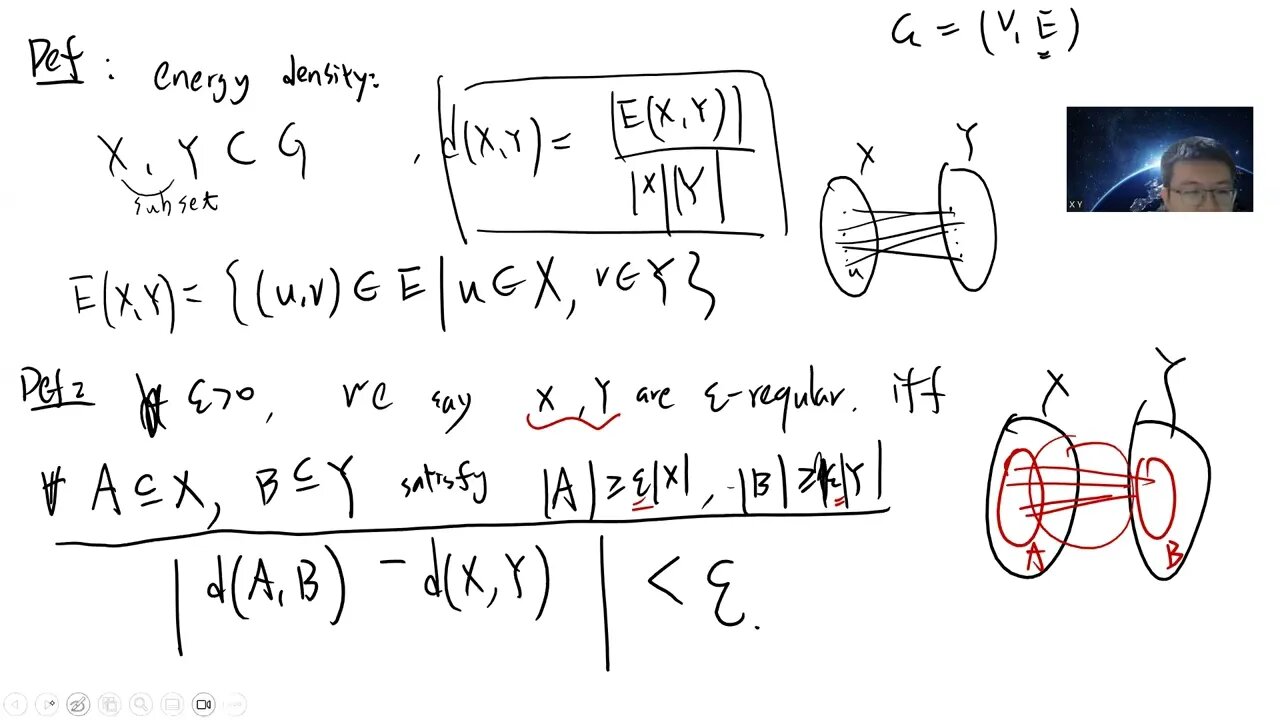 G = (V, E)
Def : energy density:
X, Y ⊂ G , d(X,Y) = |E(X,Y)| / |X||Y|
subset
X Y
u
E(X,Y) = {(u,v) ∈ E | u ∈ X, v ∈ Y}
X Y
Def 2 ∀ ε>0, we say X, Y are ε-regular. iff
∀ A ⊆ X, B ⊆ Y satisfy |A| ≥ ε|X|, |B| ≥ ε|Y|
A B
|d(A,B) - d(X,Y)| < ε.
X Y